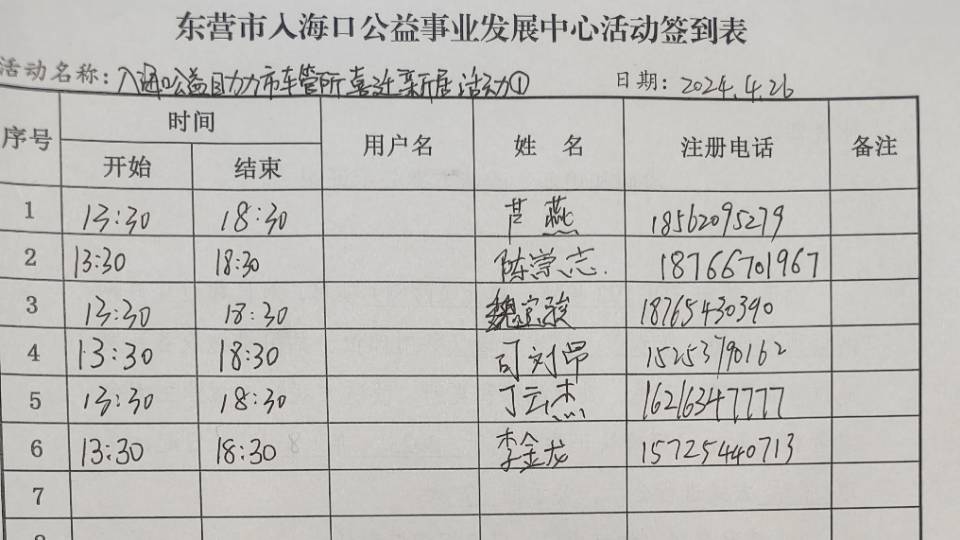 东营市入海口公益事业发展中心活动签到表
活动名称:入海口公益助力市车管所喜迁新居活动① 日期:2024.4.26
序号 时间 用户名 姓名 注册电话 备注
开始 结束
1 13:30 18:30 芦燕 18562095279
2 13:30 18:30 陈崇志 18766701967
3 13:30 18:30 魏宝骏 18765430390
4 13:30 18:30 司刘 15253790162
5 13:30 18:30 丁云杰 16216347777
6 13:30 18:30 李金龙 15725440713
7